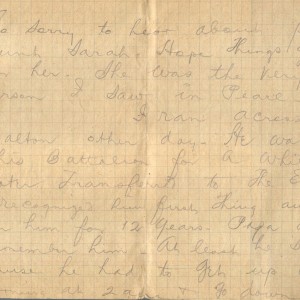 So Sorry to hear about
Aunt Sarah. Hope Things
on her. She was the very
person I saw in Peace
I ran across
alton other day. He was
his Battalion for a while
Transport to the
recognized him first thing
him for 12 years. Papa
remember him. At least he
he had to get up
at 2 am & go down